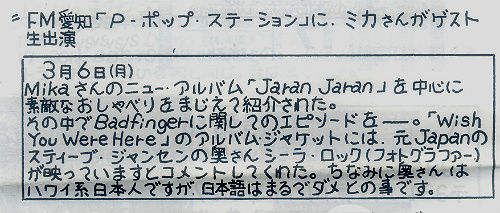 〃FM愛知「P・ポップ・ステーション」に、ミカさんがゲスト
生出演
3月6日(月)
Mikaさんのニュー・アルバム「Jaran Jaran」を中心に
素敵なおしゃべりをまじえて紹介された。
その中でBadfingerに関してのエピソードを――。「Wish
You Were Here」のアルバム・ジャケットには、元Japanの
スティーブ・ジャンセンの奥さんシーラ・ロック(フォトグラファー)
が映っていますとコメントしてくれた。ちなみに奥さんは
ハワイ系日本人ですが、日本語はまるでダメとの事です。